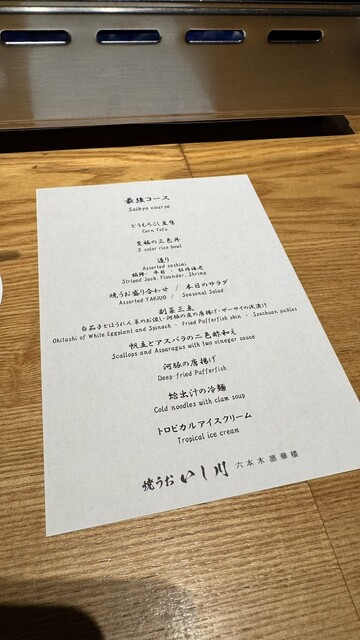 最強コース
Saikyo course
とうもろこし豆腐
Corn Tofu
至福の三色丼
3 color rice bowl
造り
Assorted sashimi
縞鯵・平目・牡丹海老
Striped Jack, Flounder, Shrimp
焼うお盛り合わせ / 本日のサラダ
Assorted YAKIUO / Seasonal Salad
副菜三点
白茄子とほうれん草のお浸し・河豚の皮の唐揚げ・ザーサイの浅漬け
Ohitashi of White Eggplant and Spinach ・ Fried Pufferfish skin ・ Szechuan pickles
帆立とアスパラの二色酢和え
Scallops and Asparagus with two vinegar sauce
河豚の唐揚げ
Deep-fried Pufferfish
蛤出汁の冷麺
Cold noodles with clam soup
トロピカルアイスクリーム
Tropical ice cream
焼うおいし川 六本木凛華楼